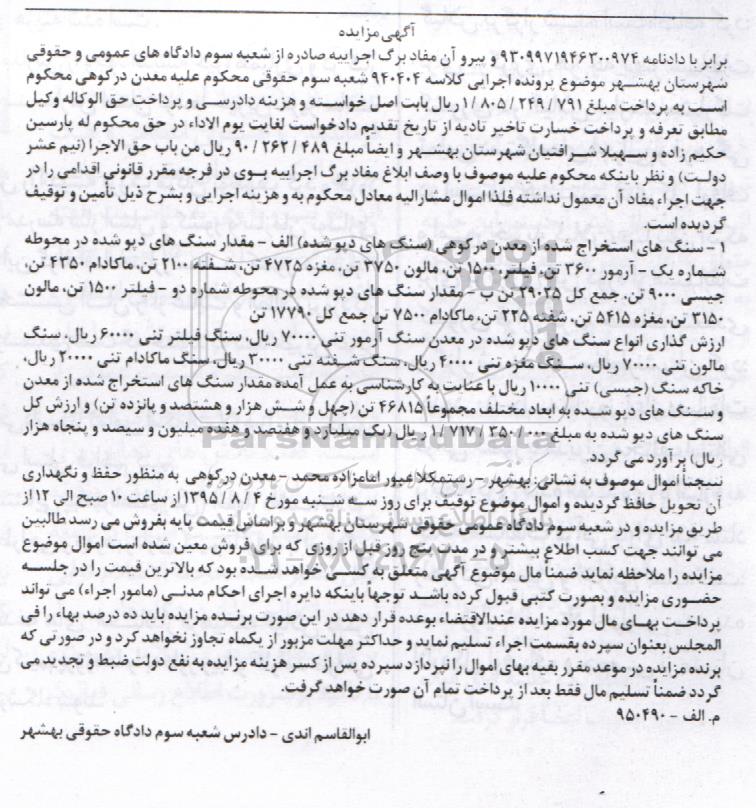 آگهی مزایده
برابر با دادنامه ۹۳۰۹۹۷۱۹۴۶۳۰۰۹۷۴ و پیرو آن مفاد برگ اجراییه صادره از شعبه سوم دادگاه های عمومی و حقوقی
شهرستان بهشهر موضوع پرونده اجرایی کلاسه ۹۴۰۴۰۴ شعبه سوم حقوقی محکوم علیه معدن درکوهی محکوم
است به پرداخت مبلغ ۷۹۱ / ۲۴۹ / ۸۰۵ / ۱ ریال بابت اصل خواسته و هزینه دادرسی و پرداخت حق الوکاله وکیل
مطابق تعرفه و پرداخت خسارت تاخیر تادیه از تاریخ تقدیم دادخواست لغایت یوم الاداء در حق محکوم له پارسین
حکیم زاده و سهیلا میرافتیان شهرستان بهشهر و ایضاً مبلغ ۴۸۹ / ۲۶۲ / ۹۰ ریال من باب حق الاجرا (نیم عشر
دولت) و نظر باینکه محکوم علیه موصوف با وصف ابلاغ مفاد برگ اجراییه بوی در فرجه مقرر قانونی اقدامی را در
جهت اجراء مفاد آن معمول نداشته فلذا اموال مشارالیه معادل محکوم به و هزینه اجرایی و بشرح ذیل تأمین و توقیف
گردیده است.
۱ - سنگ های استخراج شده از معدن درکوهی (سنگ های دپو شده) الف - مقدار سنگ های دپو شده در محوطه
شماره یک - آرمور ۳۶۰۰ تن، فیلتر، ۱۵۰۰ تن، مالون ۳۷۵۰ تن، مغزه ۴۷۲۵ تن، شفته ۲۱۰۰ تن، ماکادام ۴۳۵۰ تن،
جیسی ۹۰۰۰ تن، جمع کل ۲۹۰۲۵ تن ب - مقدار سنگ های دپو شده در محوطه شماره دو - فیلتر ۱۵۰۰ تن، مالون
۳۱۵۰ تن، مغزه ۵۴۱۵ تن، شفته ۲۲۵ تن، ماکادام ۷۵۰۰ تن جمع کل ۱۷۷۹۰ تن
ارزش گذاری انواع سنگ های دپو شده در معدن سنگ آرمور تنی ۷۰۰۰۰ ریال، سنگ فیلتر تنی ۶۰۰۰۰ ریال، سنگ
مالون تنی ۷۰۰۰۰ ریال، سنگ مغزه تنی ۴۰۰۰۰ ریال، سنگ شفته تنی ۳۰۰۰۰ ریال، سنگ ماکادام تنی ۲۰۰۰۰ ریال،
خاکه سنگ (جیسی) تنی ۱۰۰۰۰ ریال با عنایت به کارشناسی به عمل آمده مقدار سنگ های استخراج شده از معدن
و سنگ های دپو شده به ابعاد مختلف مجموعاً ۴۶۸۱۵ تن (چهل و شش هزار و هشتصد و پانزده تن) و ارزش کل
سنگ های دپو شده به مبلغ ۰۰۰ / ۳۵۰ / ۷۱۷ / ۱ ریال (یک میلیارد و هفتصد و هفده میلیون و سیصد و پنجاه هزار
ریال) برآورد می گردد.
نتیجتاً اموال موصوف به نشانی: بهشهر - رستمکلا عبور امامزاده محمد - معدن درکوهی به منظور حفظ و نگهداری
آن تحویل حافظ گردیده و اموال موضوع توقیف برای روز سه شنبه مورخ ۴ / ۸ / ۱۳۹۵ از ساعت ۱۰ صبح الی ۱۲ از
طریق مزایده و در شعبه سوم دادگاه عمومی حقوقی شهرستان بهشهر و بر مبنای قیمت پایه بفروش می رسد طالبین
می توانند جهت کسب اطلاع بیشتر و در مدت پنج روز قبل از روزی که برای فروش معین شده است اموال موضوع
مزایده را ملاحظه نماید ضمناً مال موضوع آگهی متعلق به کسی خواهد شده بود که بالاترین قیمت را در جلسه
حضوری مزایده و بصورت کتبی قبول کرده باشد. توجهاً باینکه دایره اجرای احکام مدنی (مامور اجراء) می تواند
پرداخت بهای مال مورد مزایده عندالاقتضاء بوعده قرار دهد در این صورت برنده مزایده باید ده درصد بهاء را فی
المجلس بعنوان سپرده بقسمت اجراء تسلیم نماید و حداکثر مهلت مزبور از یکماه تجاوز نخواهد کرد و در صورتی که
برنده مزایده در موعد مقرر بقیه بهای اموال را نپردازد سپرده پس از کسر هزینه مزایده به نفع دولت ضبط و تجدید می
گردد ضمناً تسلیم مال فقط بعد از پرداخت تمام آن صورت خواهد گرفت.
م. الف - ۹۵۰۴۹۰
ابوالقاسم اندی - دادرس شعبه سوم دادگاه حقوقی بهشهر
ParsNamadData
پایگاه اطلاع رسانی مناقصه و مزایده
۰۲۱-۸۸۳۴۹۶۷۰-۵